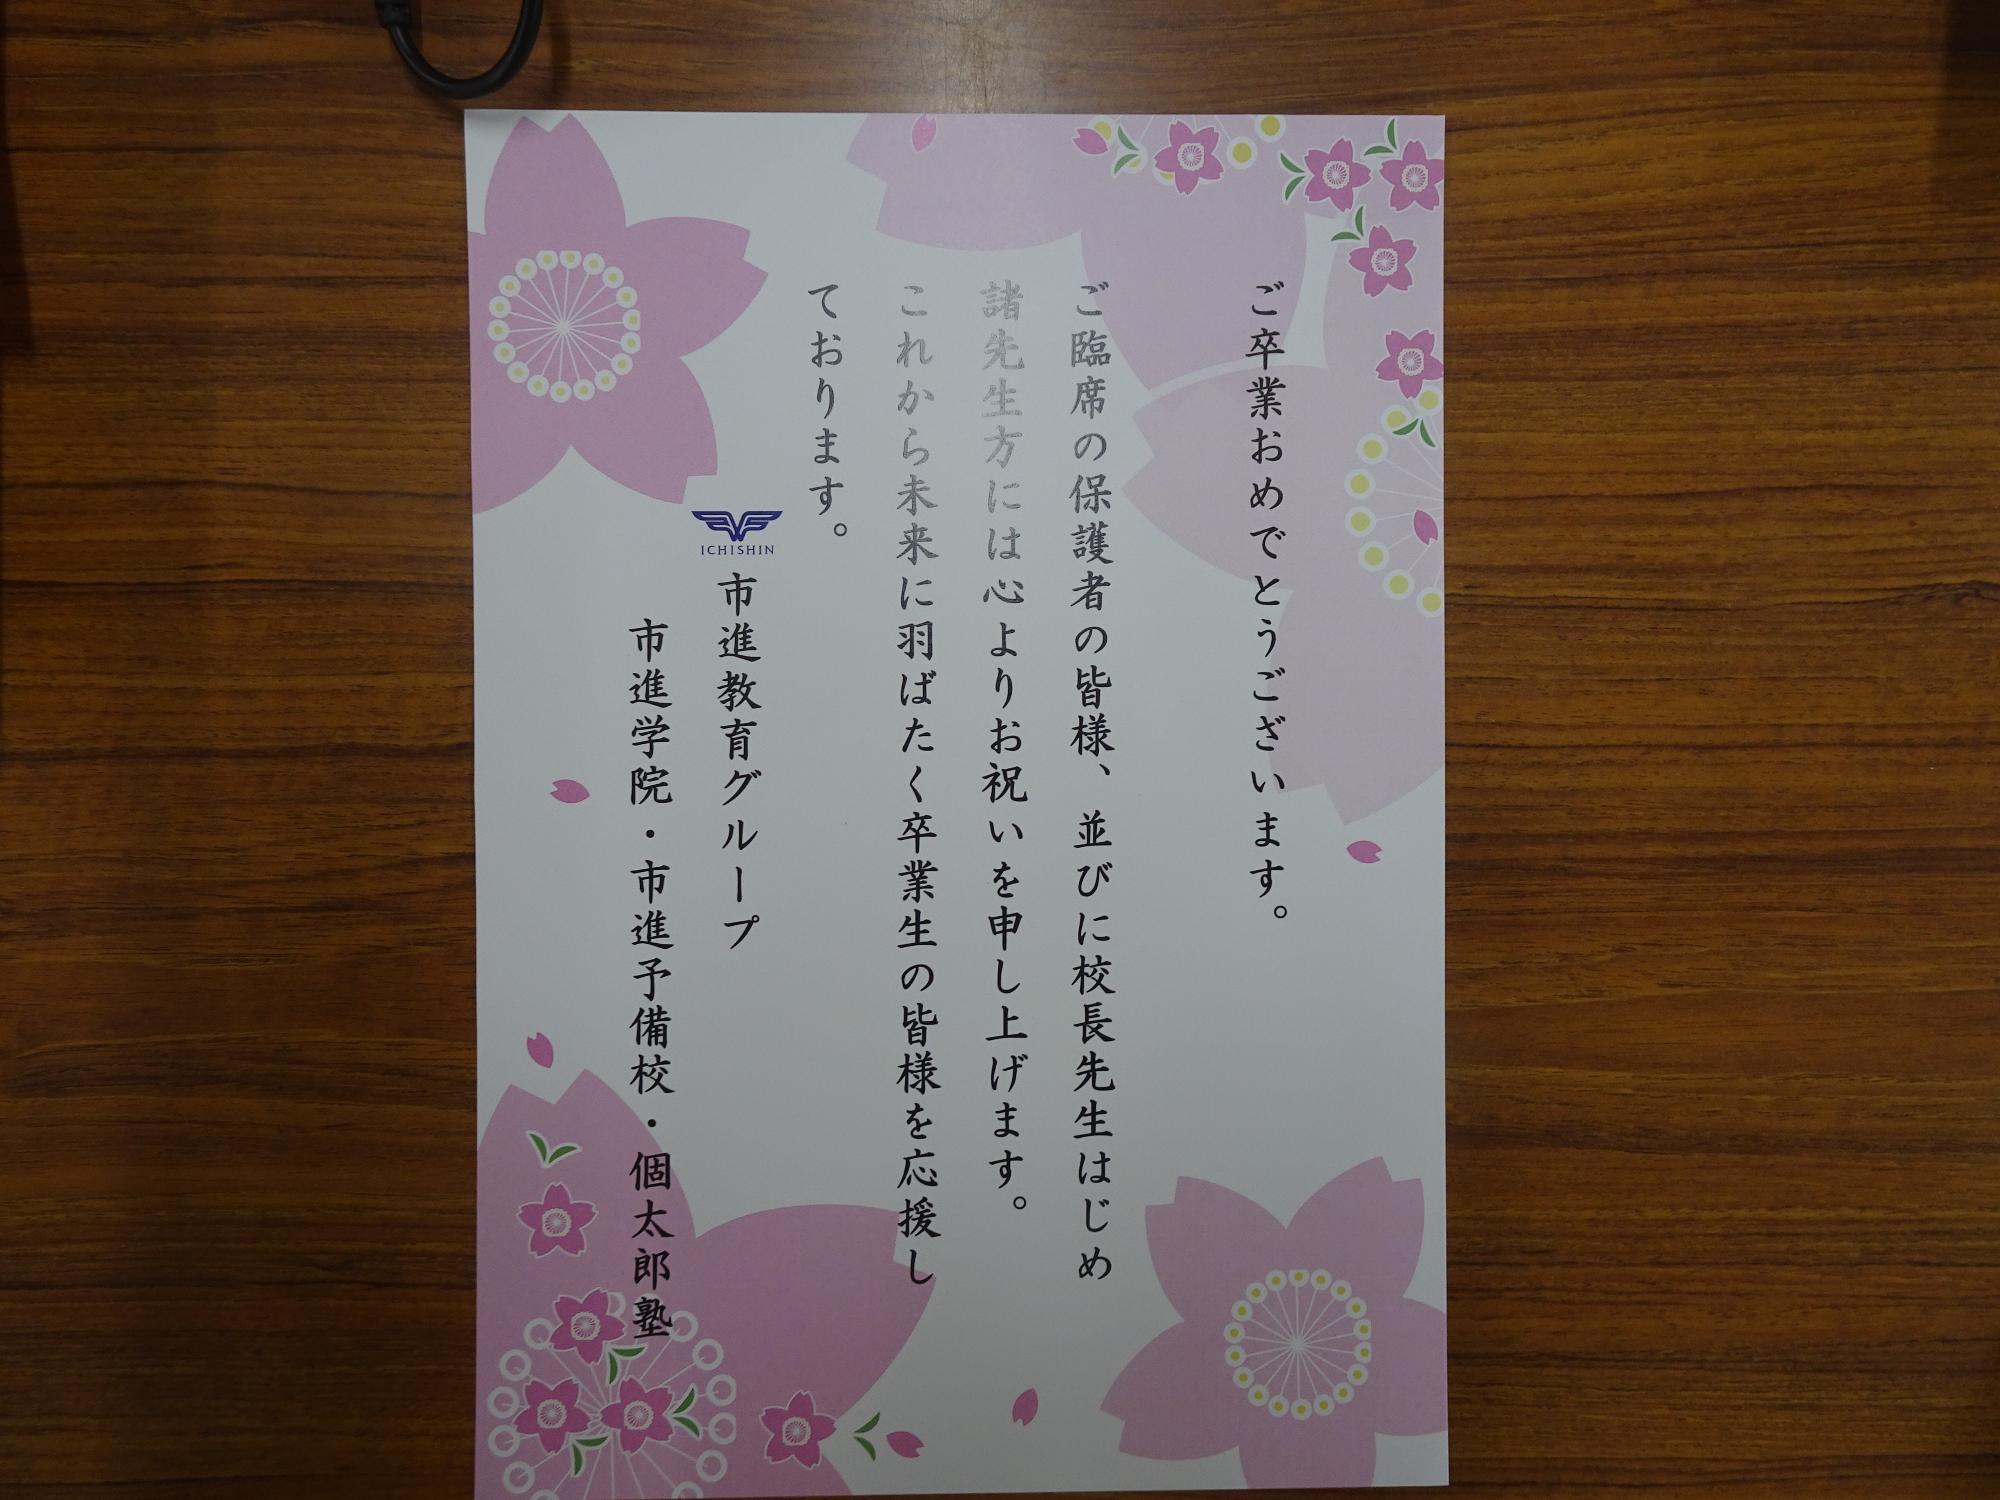 ご卒業おめでとうございます。
ご臨席の保護者の皆様、並びに校長先生はじめ
諸先生方には心よりお祝いを申し上げます。
これから未来に羽ばたく卒業生の皆様を応援し
ております。
ICHISHIN
市進教育グループ
市進学院・市進予備校・個太郎塾